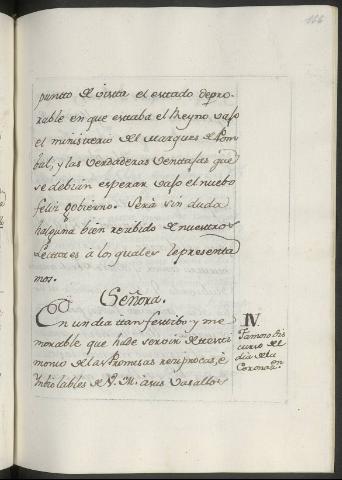 166
puntto de vista el esttado deplo-
rable en que estaba el Reyno vajo
el ministerio del Marques de Pom
bal, y las verdaderas venttajas que
se debian esperar vajo el nuebo
feliz gobierno. Sera sin duda
halguna bien recibido de nuestros
Lectores à los quales le presenta
mos.
Señora.
En un dia ttan festtibo y me
morable que hade servir de testti
monio de las Promesas reciprocas, è
Ynbiolables de V. M. à sus Vasallos
IV
Famoso Dis
curso del
dia de la
Coronaon.